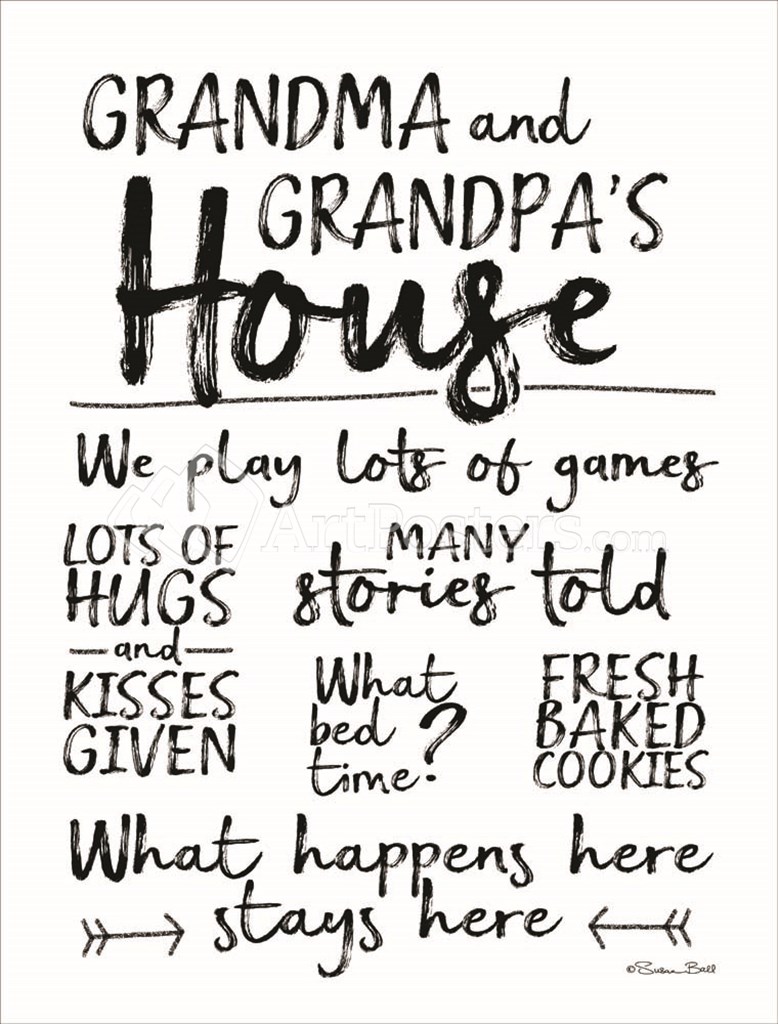 GRANDMA and
GRANDPA'S
House
We play lots of games
LOTS OF
HUGS
and
KISSES
GIVEN
MANY
stories told
What
bed
time?
FRESH
BAKED
COOKIES
What happens here
stays here
©Susan Ball
ArtPosters.com